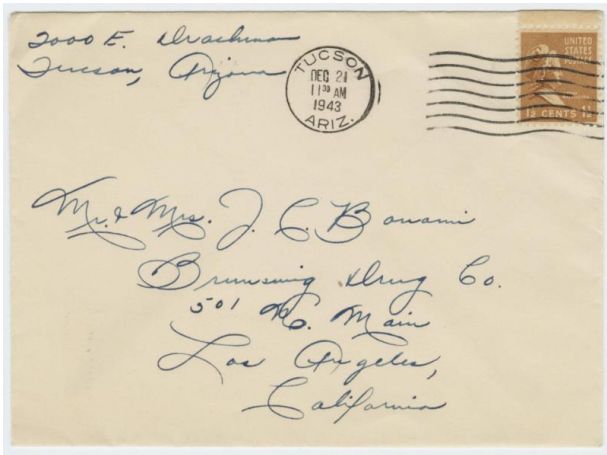 2000 E. Drachman
Tucson, Arizona
TUCSON
DEC 21
11 30 AM
1943
ARIZ.
UNITED
STATES
POSTAGE
1½ CENTS 1½
Mr. & Mrs. J. C. Bonami
Brunswig Drug Co.
501 N. Main
Los Angeles,
California